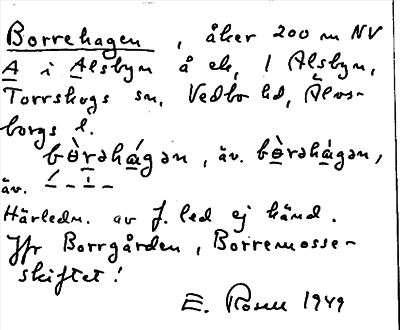 Borrehagen, åker 200 m NV
A i Alsbyn å ek, 1 Alsbyn,
Torrskogs sn, Vedbo hd, Älvs-
borgs l.
bɵ̀rəhágən, äv. bɵ̀rəhágən,
äv.
Härledn. av f. led ej känd.
Jfr Borrgården, Borremosse-
skiftet!
E. Rosell 1949